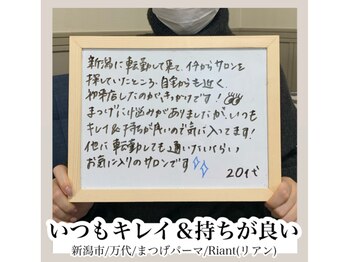 新潟に転勤して来て、イチからサロンを
探していたところ、自宅からも近く、
初来店したのがきっかけです!
まつげに悩みがありましたが、いつも
キレイ&持ちが良いので気に入ってます!
他に転勤しても通いたいくらい
お気に入りのサロンです
20代
いつもキレイ&持ちが良い
新潟市/万代/まつげパーマ/Riant(リアン)